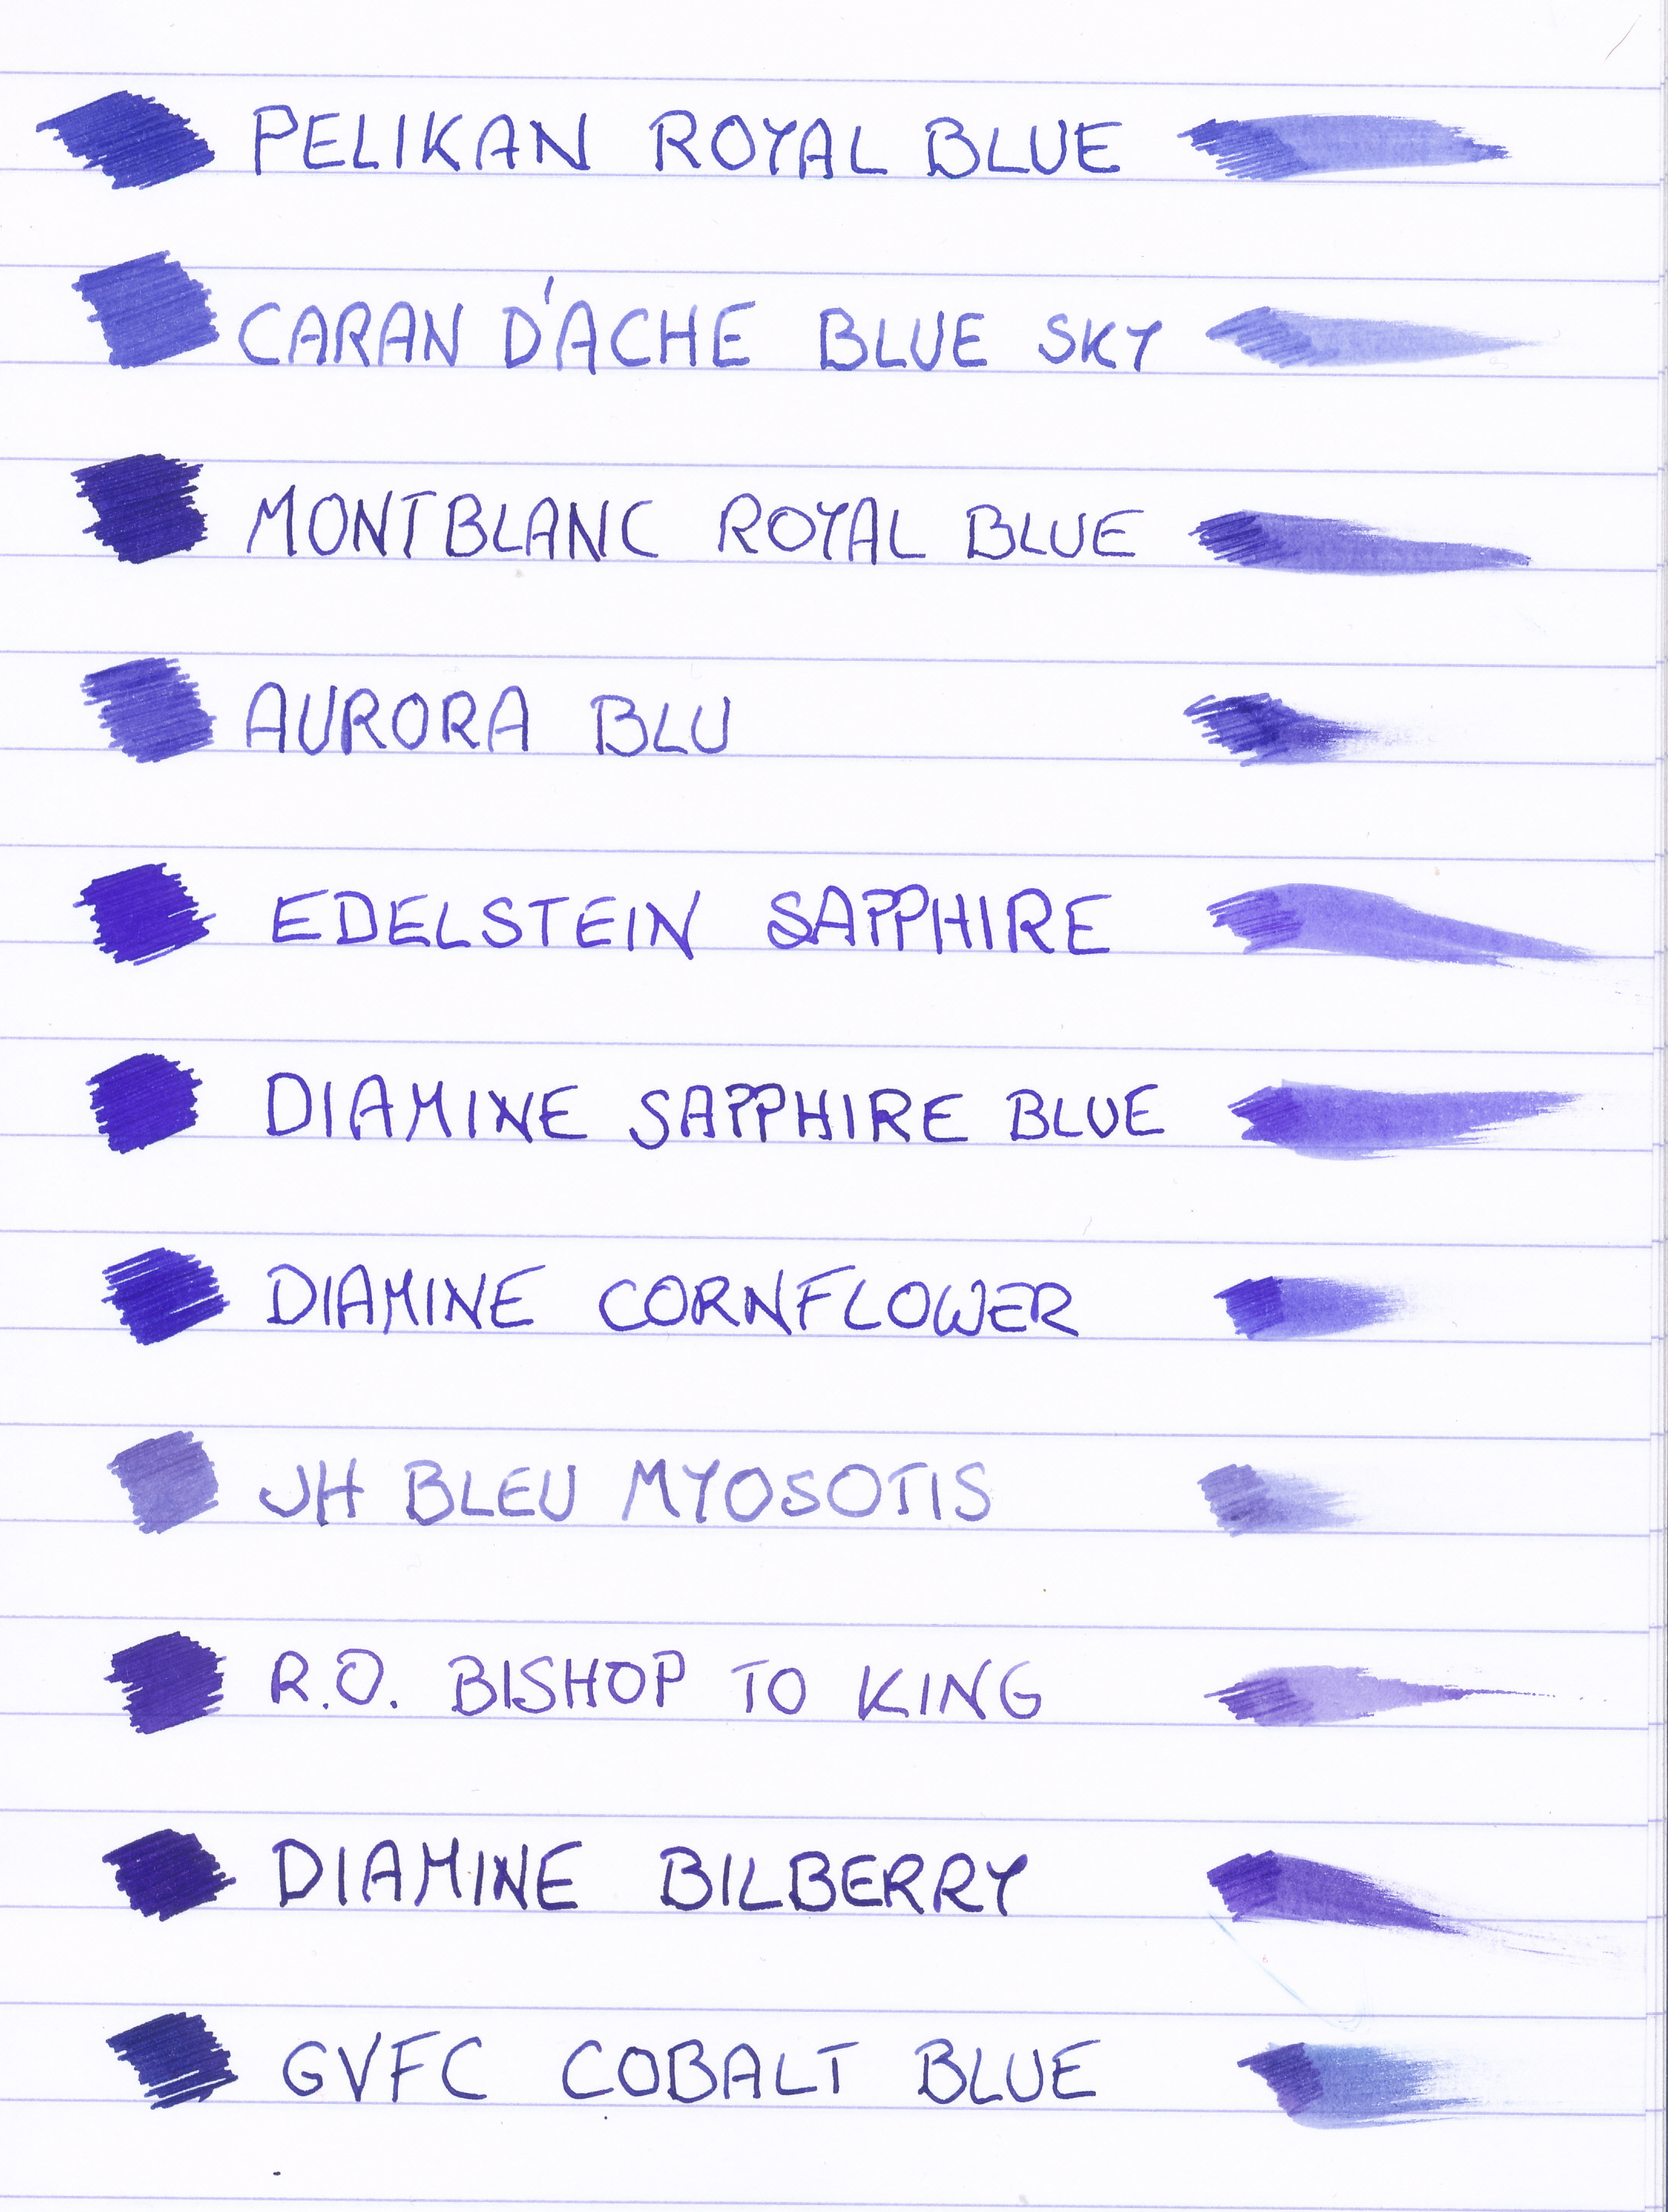 PELIKAN ROYAL BLUE
CARAN D'ACHE BLUE SKY
MONTBLANC ROYAL BLUE
AURORA BLU
EDELSTEIN SAPPHIRE
DIAMINE SAPPHIRE BLUE
DIAMINE CORNFLOWER
JH BLEU MYOSOTIS
R.O. BISHOP TO KING
DIAMINE BILBERRY
GVFC COBALT BLUE